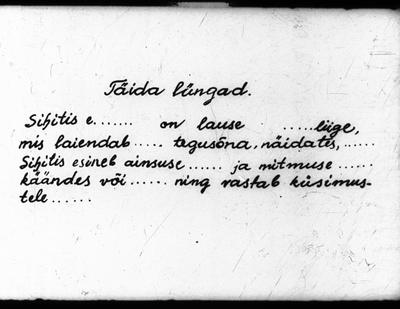 Täida lüngad.
Sihitis e....... on lause ......liige,
mis laiendab ..... tegusõna, näidates, .....
Sihitis esineb ainsuse ...... ja mitmuse ......
käändes või ...... ning vastab küsimus-
tele ......